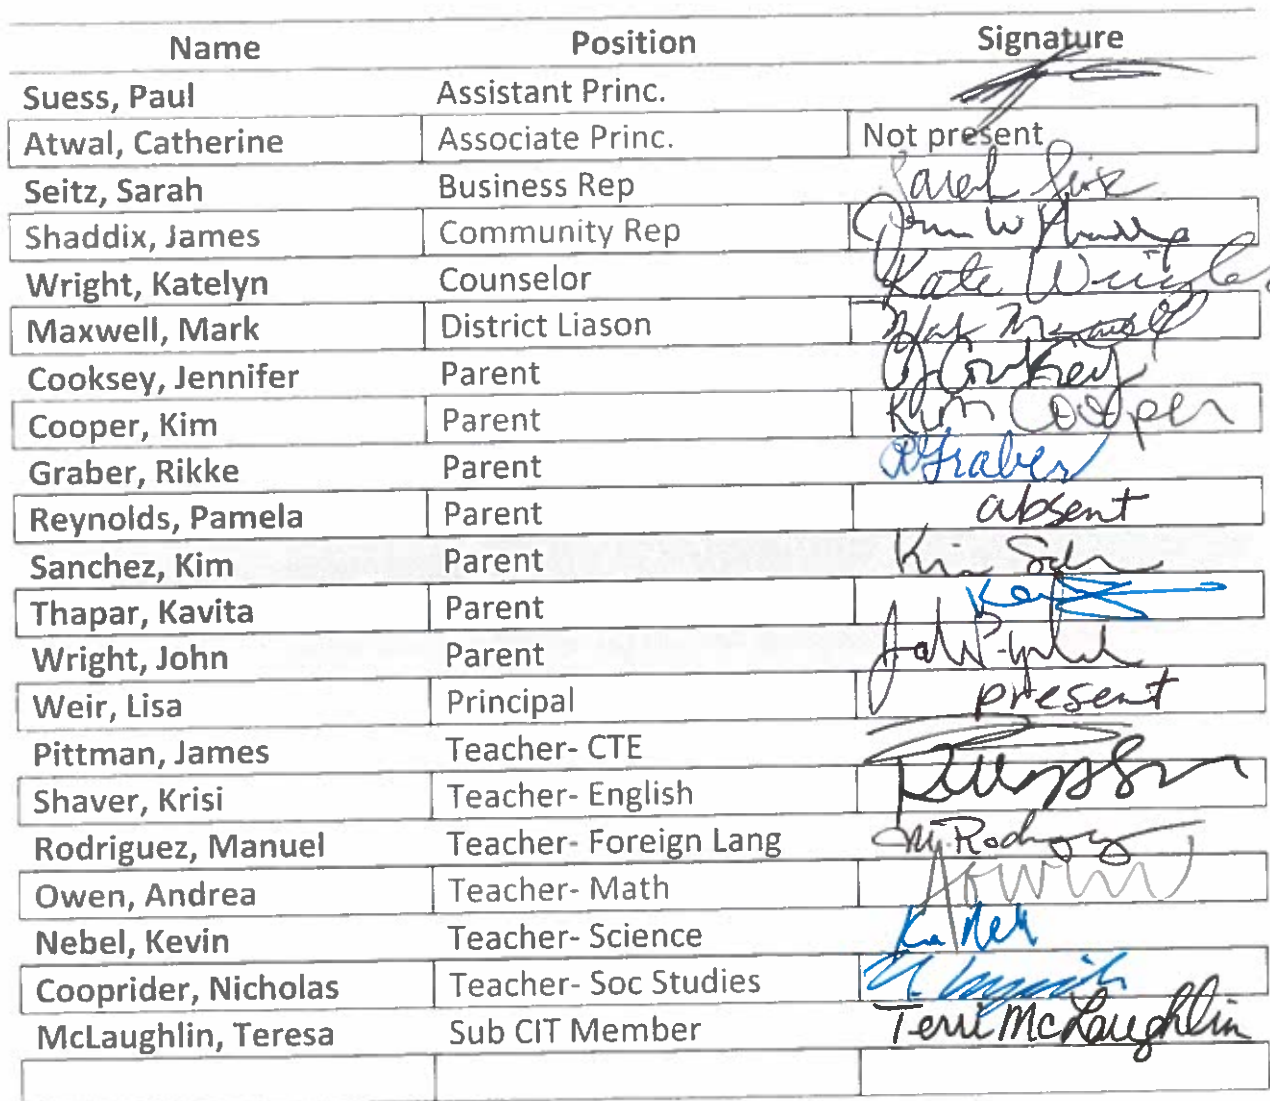 Name Position Signature
Suess, Paul Assistant Princ.
Atwal, Catherine Associate Princ. Not present
Seitz, Sarah Business Rep Sarah
Shaddix, James Community Rep
Wright, Katelyn Counselor Kate Wright
Maxwell, Mark District Liason Mark Maxwell
Cooksey, Jennifer Parent J Cooksey
Cooper, Kim Parent Kim Cooper
Graber, Rikke Parent RGraber
Reynolds, Pamela Parent absent
Sanchez, Kim Parent
Thapar, Kavita Parent
Wright, John Parent
Weir, Lisa Principal present
Pittman, James Teacher- CTE
Shaver, Krisi Teacher- English
Rodriguez, Manuel Teacher- Foreign Lang
Owen, Andrea Teacher- Math
Nebel, Kevin Teacher- Science
Cooprider, Nicholas Teacher- Soc Studies
McLaughlin, Teresa Sub CIT Member Terri McLaughlin